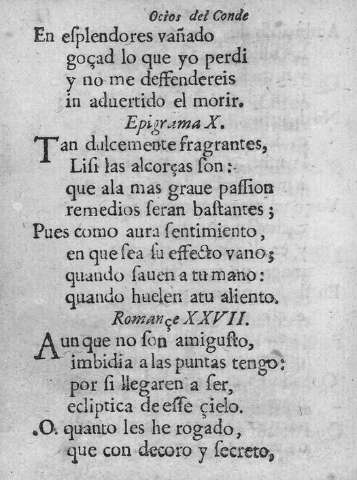 Ocios del Conde
En eſplendores vañado
goçad lo que yo perdi
y no me deffendereis
in aduertido el morir.
Epigrama X.
Tan dulcemente fragrantes,
Liſi las alcorças ſon:
que ala mas graue paſſion
remedios ſeran baſtantes;
Pues como aura ſentimiento,
en que sea ſu effecto vano;
quando ſauen a tu mano:
quando huelen atu aliento.
Romançe XXVII.
Aunque no ſon amiguſto,
imbidia a las puntas tengo:
por ſi llegaren a ſer,
ecliptica de eſſe çielo.
.O. quanto les he rogado,
que con decoro y ſecreto,